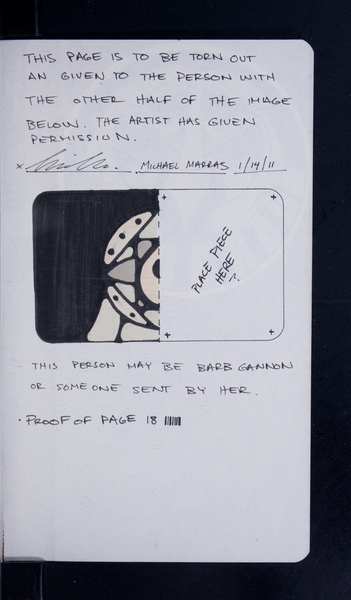 THIS PAGE IS TO BE TORN OUT
AN GIVEN TO THE PERSON WITH
THE OTHER HALF OF THE IMAGE
BELOW. THE ARTIST HAS GIVEN
PERMISSION.
x MICHAEL MARRAS 1/14/11
PLACE PIECE
HERE
THIS PERSON MAY BE BARB GANNON
OR SOMEONE SENT BY HER.
· PROOF OF PAGE 18